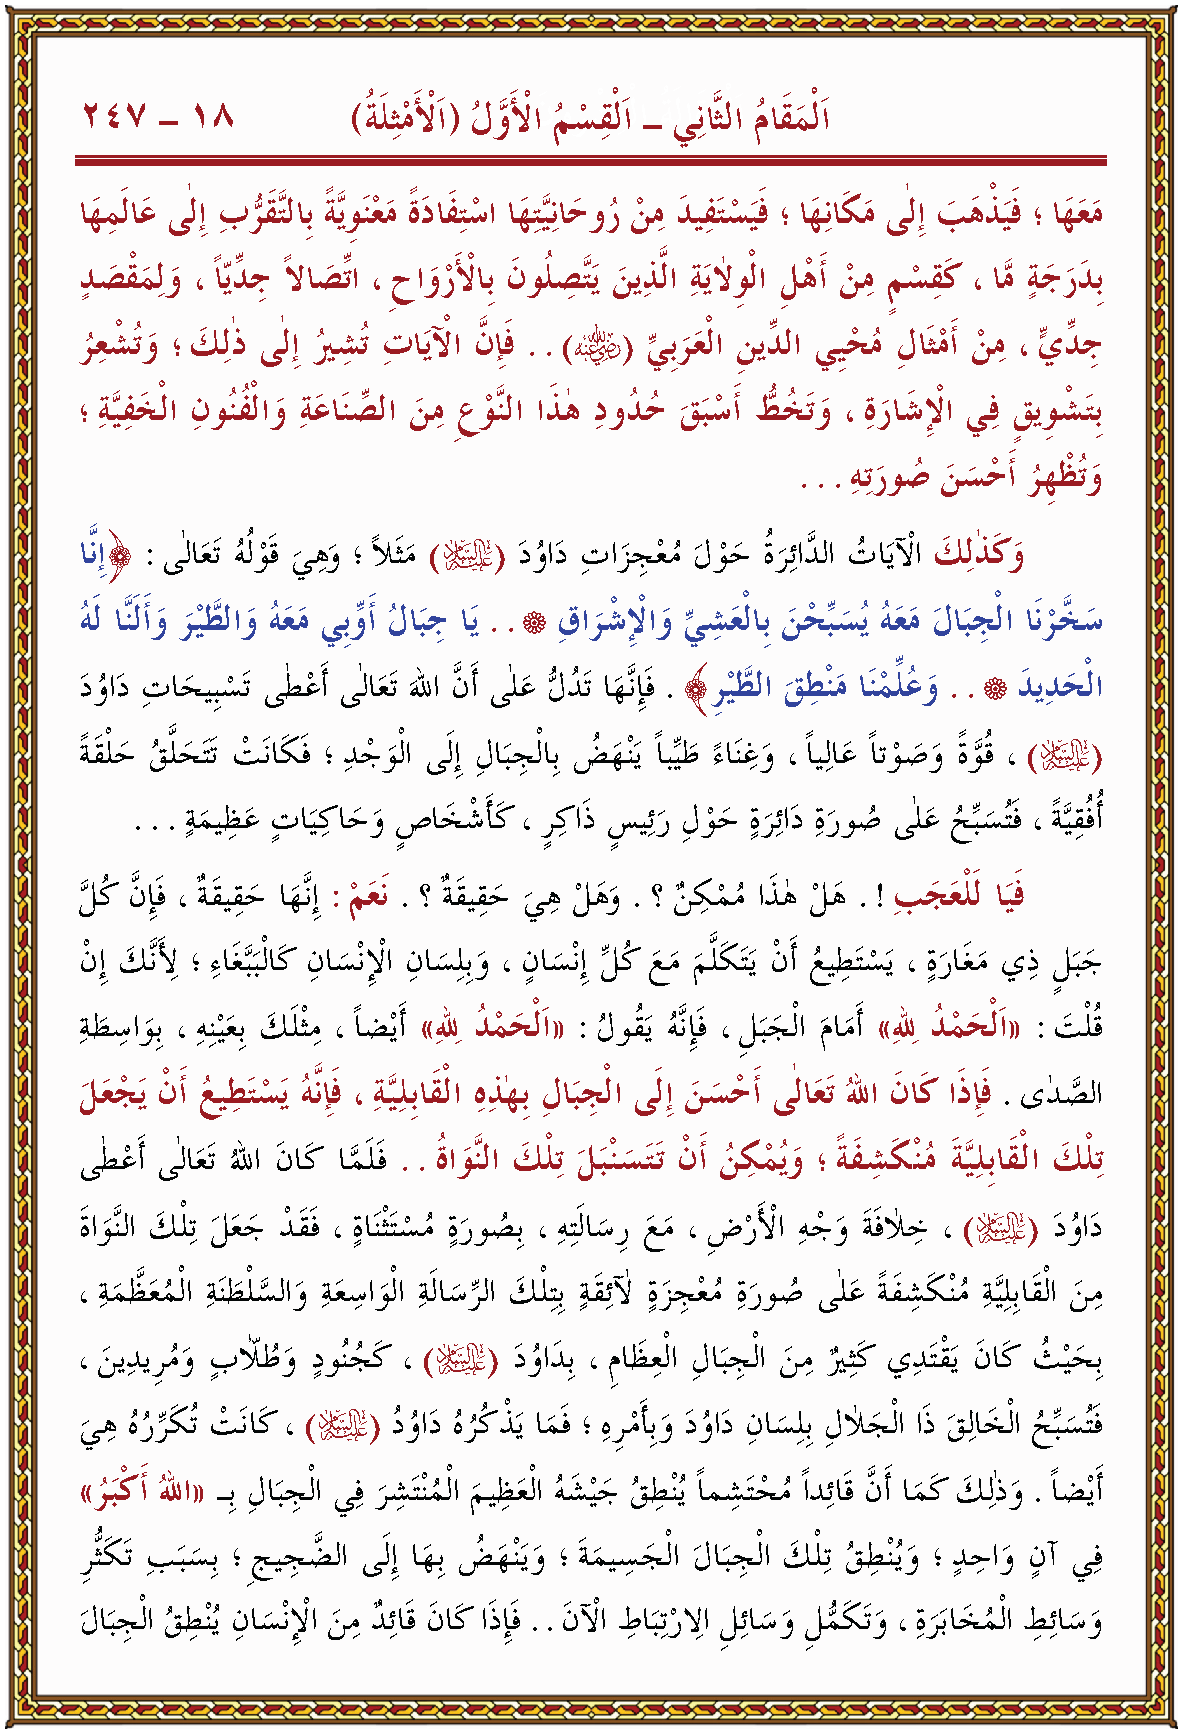 اَلْمَقَامُ الثَّانِي ـ اَلْقِسْمُ الْأَوَّلُ (اَلْأَمْثِلَةُ) ١٨ ـ ٢٤٧
مَعَهَا ؛ فَيَذْهَبَ إِلٰى مَكَانِهَا ؛ فَيَسْتَفِيدَ مِنْ رُوحَانِيَّتِهَا اسْتِفَادَةً مَعْنَوِيَّةً بِالتَّقَرُّبِ إِلٰى عَالَمِهَا
بِدَرَجَةٍ مَّا ، كَقِسْمٍ مِنْ أَهْلِ الْوِلَايَةِ الَّذِينَ يَتَّصِلُونَ بِالْأَرْوَاحِ ، اتِّصَالاً جِدِّيّاً ، وَلِمَقْصَدٍ
جِدِّيٍّ ، مِنْ أَمْثَالِ مُحْيِي الدِّينِ الْعَرَبِيِّ (رضي الله عنه) . . فَإِنَّ الْآيَاتِ تُشِيرُ إِلٰى ذٰلِكَ ؛ وَتُشْعِرُ
بِتَشْوِيقٍ فِي الْإِشَارَةِ ، وَتَخُطُّ أَسْبَقَ حُدُودِ هٰذَا النَّوْعِ مِنَ الصِّنَاعَةِ وَالْفُنُونِ الْخَفِيَّةِ ؛
وَتُظْهِرُ أَحْسَنَ صُورَتِهِ . . .
وَكَذٰلِكَ الْآيَاتُ الدَّائِرَةُ حَوْلَ مُعْجِزَاتِ دَاوُدَ (عليه السلام) مَثَلاً ؛ وَهِيَ قَوْلُهُ تَعَالٰى : ﴿إِنَّا
سَخَّرْنَا الْجِبَالَ مَعَهُ يُسَبِّحْنَ بِالْعَشِيِّ وَالْإِشْرَاقِ ۞ . . يَا جِبَالُ أَوِّبِي مَعَهُ وَالطَّيْرَ وَأَلَنَّا لَهُ
الْحَدِيدَ ۞ . . وَعُلِّمْنَا مَنْطِقَ الطَّيْرِ﴾ . فَإِنَّهَا تُدَلُّ عَلٰى أَنَّ اللهَ تَعَالٰى أَعْطٰى تَسْبِيحَاتِ دَاوُدَ
(عليه السلام) ، قُوَّةً وَصَوْتاً عَالِياً ، وَغِنَاءً طَيِّباً يَنْهَضُ بِالْجِبَالِ إِلَى الْوَجْدِ ؛ فَكَانَتْ تَتَحَلَّقُ حَلْقَةً
أُفُقِيَّةً ، فَتُسَبِّحُ عَلٰى صُورَةِ دَائِرَةٍ حَوْلَ رَئِيسٍ ذَاكِرٍ ، كَأَشْخَاصٍ وَحَاكِيَاتٍ عَظِيمَةٍ . . .
فَيَا لَلْعَجَبِ ! . هَلْ هٰذَا مُمْكِنٌ ؟ . وَهَلْ هِيَ حَقِيقَةٌ ؟ . نَعَمْ : إِنَّهَا حَقِيقَةٌ ، فَإِنَّ كُلَّ
جَبَلٍ ذِي مَغَارَةٍ ، يَسْتَطِيعُ أَنْ يَتَكَلَّمَ مَعَ كُلِّ إِنْسَانٍ ، وَبِلِسَانِ الْإِنْسَانِ كَالْبَبَّغَاءِ ؛ لِأَنَّكَ إِنْ
قُلْتَ : «اَلْحَمْدُ لِلهِ» أَمَامَ الْجَبَلِ ، فَإِنَّهُ يَقُولُ : «اَلْحَمْدُ لِلهِ» أَيْضاً ، مِثْلَكَ بِعَيْنِهِ ، بِوَاسِطَةِ
الصَّدٰى . فَإِذَا كَانَ اللهُ تَعَالٰى أَحْسَنَ إِلَى الْجِبَالِ بِهٰذِهِ الْقَابِلِيَّةِ ، فَإِنَّهُ يَسْتَطِيعُ أَنْ يَجْعَلَ
تِلْكَ الْقَابِلِيَّةَ مُنْكَشِفَةً ؛ وَيُمْكِنُ أَنْ تَتَسَنْبَلَ تِلْكَ النَّوَاةُ . . فَلَمَّا كَانَ اللهُ تَعَالٰى أَعْطٰى
دَاوُدَ (عليه السلام) ، خِلَافَةَ وَجْهِ الْأَرْضِ ، مَعَ رِسَالَتِهِ ، بِصُورَةٍ مُسْتَثْنَاةٍ ، فَقَدْ جَعَلَ تِلْكَ النَّوَاةَ
مِنَ الْقَابِلِيَّةِ مُنْكَشِفَةً عَلٰى صُورَةِ مُعْجِزَةٍ لَآئِقَةٍ بِتِلْكَ الرِّسَالَةِ الْوَاسِعَةِ وَالسَّلْطَنَةِ الْمُعَظَّمَةِ ،
بِحَيْثُ كَانَ يَقْتَدِي كَثِيرٌ مِنَ الْجِبَالِ الْعِظَامِ ، بِدَاوُدَ (عليه السلام) ، كَجُنُودٍ وَطُلَّابٍ وَمُرِيدِينَ ،
فَتُسَبِّحُ الْخَالِقَ ذَا الْجَلَالِ بِلِسَانِ دَاوُدَ وَبِأَمْرِهِ ؛ فَمَا يَذْكُرُهُ دَاوُدُ (عليه السلام) ، كَانَتْ تُكَرِّرُهُ هِيَ
أَيْضاً . وَذٰلِكَ كَمَا أَنَّ قَائِداً مُحْتَشِماً يُنْطِقُ جَيْشَهُ الْعَظِيمَ الْمُنْتَشِرَ فِي الْجِبَالِ بِـ «اللهُ أَكْبَرُ»
فِي آنٍ وَاحِدٍ ؛ وَيُنْطِقُ تِلْكَ الْجِبَالَ الْجَسِيمَةَ ؛ وَيَنْهَضُ بِهَا إِلَى الضَّجِيجِ ؛ بِسَبَبِ تَكَثُّرِ
وَسَائِطِ الْمُخَابَرَةِ ، وَتَكَمُّلِ وَسَائِلِ الِارْتِبَاطِ الْآنَ . . فَإِذَا كَانَ قَائِدٌ مِنَ الْإِنْسَانِ يُنْطِقُ الْجِبَالَ